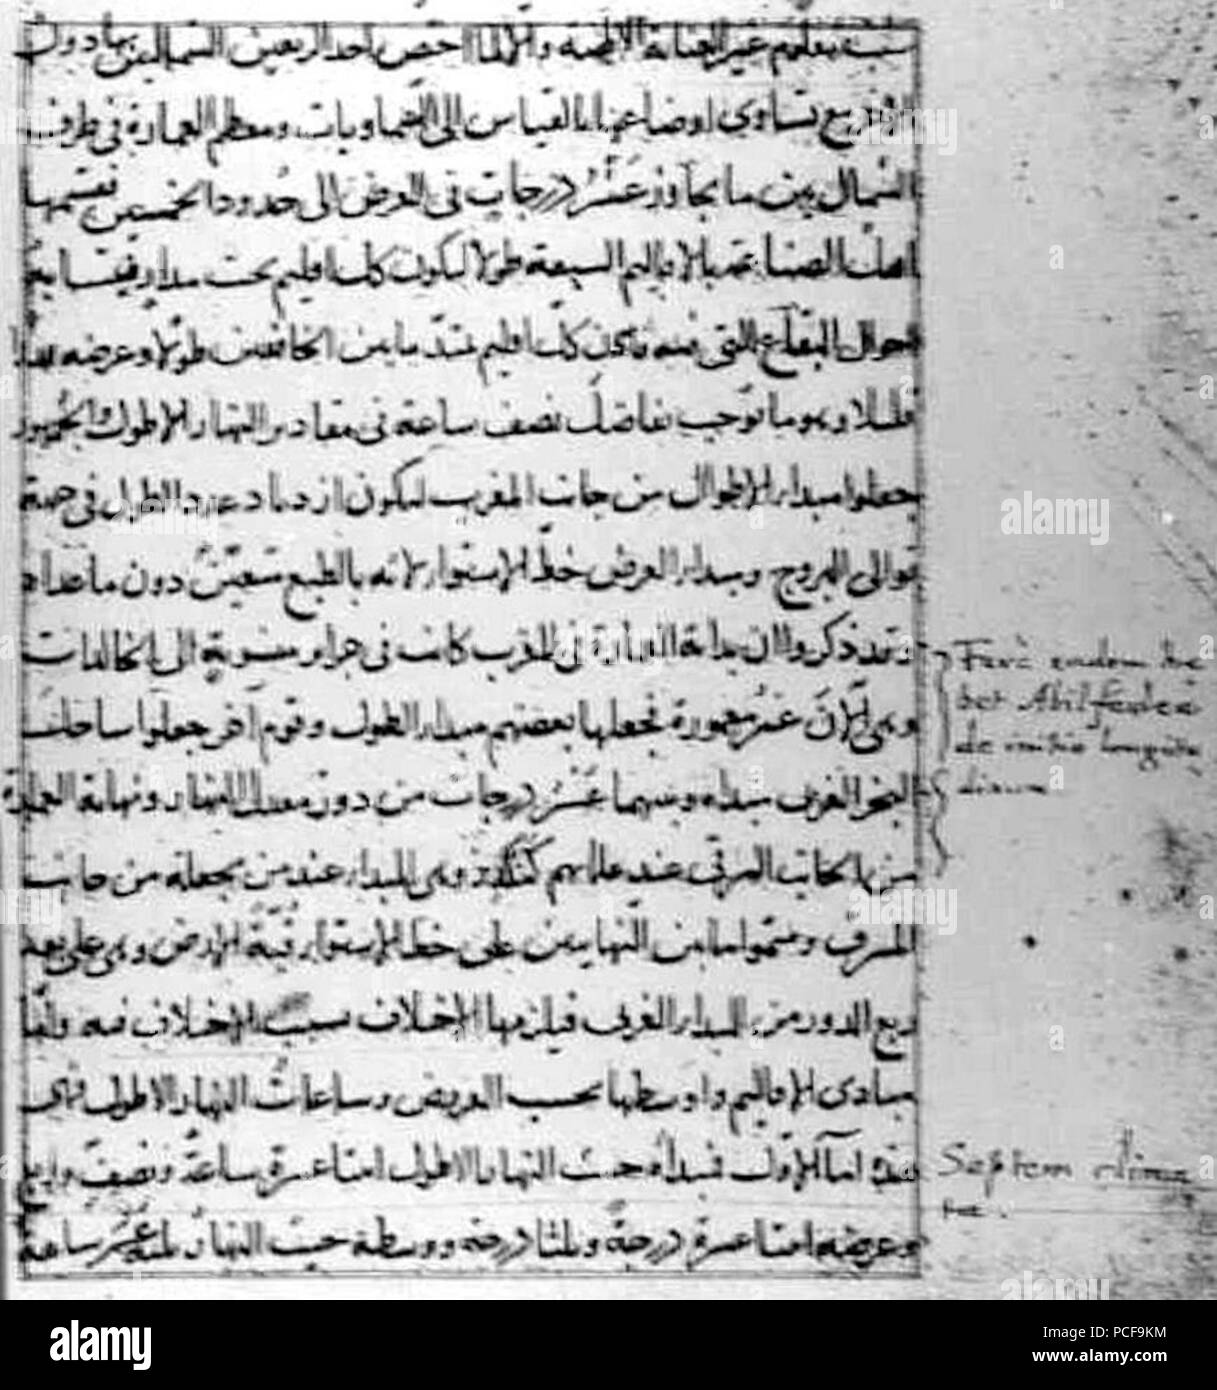 سبب معلوم غير العناية الالهية والا لما اختص احد الربعين الشماليين بها دون
الاخر مع تساوى اوضاعهما بالقياس الى السماويات ومعظم العمارة فى طرف
الشمال بين ما يجاوز عشر درجات فى العرض الى حدود الخمسين فقسمها
اهل الصناعة بالاقاليم السبعة طولا ليكون كل اقليم تحت مدار فيتشابه
احوال البقاع التى فيه فيكون كل اقليم ممتدا ما بين الخافقين طولا وعرضه
قليلا وهو ما توجب تفاضل نصف ساعة فى مقادير النهار الاطول والجمهور
جعلوا مبدا الاطوال من جانب المغرب ليكون ازدياد عدد الطول فى جهة
توالى البروج ومبدا العرض خط الاستوا لانه بالطبع متعين دون ما عداه
وقد ذكروا ان بداية العمارة فى المغرب كانت فى جزاير منسوبة الى الخالدات
وهى الان غير معمورة فجعلها بعضهم مبدا الطول وقوم آخر جعلوا ساحل
البحر الغربى مبداه وبينهما عشر درجات من دور معدل النهار ونهاية العمارة
من الجانب الشرقى عند علمائهم كنكدز وهى المبدا عند من يجعله من جانب
المشرق وسموا ما بين النهايتين على خط الاستوا قبة الارض وهى على بعد
ربع الدور من المبدا الغربى فيلزمها الاختلاف بسبب الاختلاف فيه واما
مبادى الاقاليم واوسطها بحسب العروض وساعات النهار الاطول فهى
هذه اما الاول فمبداه حيث النهار الاطول اثنا عشرة ساعة ونصف وربع
وعرضه اثنا عشرة درجة وثلثا درجة ووسطه حيث النهار ثلثة عشر ساعة
Ferè eadem ha
bet Abilfedea
de initio longitu
dinum
Septem clima
ta.
alamy
Image ID: PCF9KM
www.alamy.com